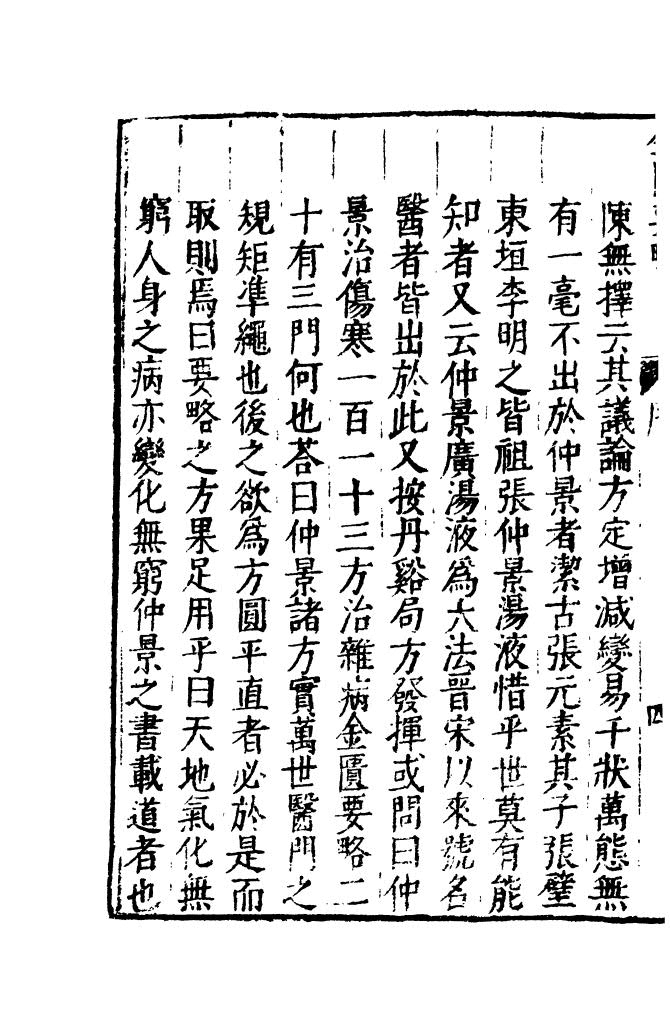 陳無擇云其議論方定增減變易千狀萬態無
有一毫不出於仲景者潔古張元素其子張璧
東垣李明之皆祖張仲景湯液惜乎世莫有能
知者又云仲景廣湯液為大法晋宋以來號名
醫者皆出於此又按丹谿局方發揮或問曰仲
景治傷寒一百一十三方治雜病金匱要略二
十有三門何也荅曰仲景諸方實萬世醫門之
規矩準繩也後之欲為方圓平直者必於是而
取則焉曰要略之方果足用乎曰天地氣化無
窮人身之病亦變化無窮仲景之書載道者也
四